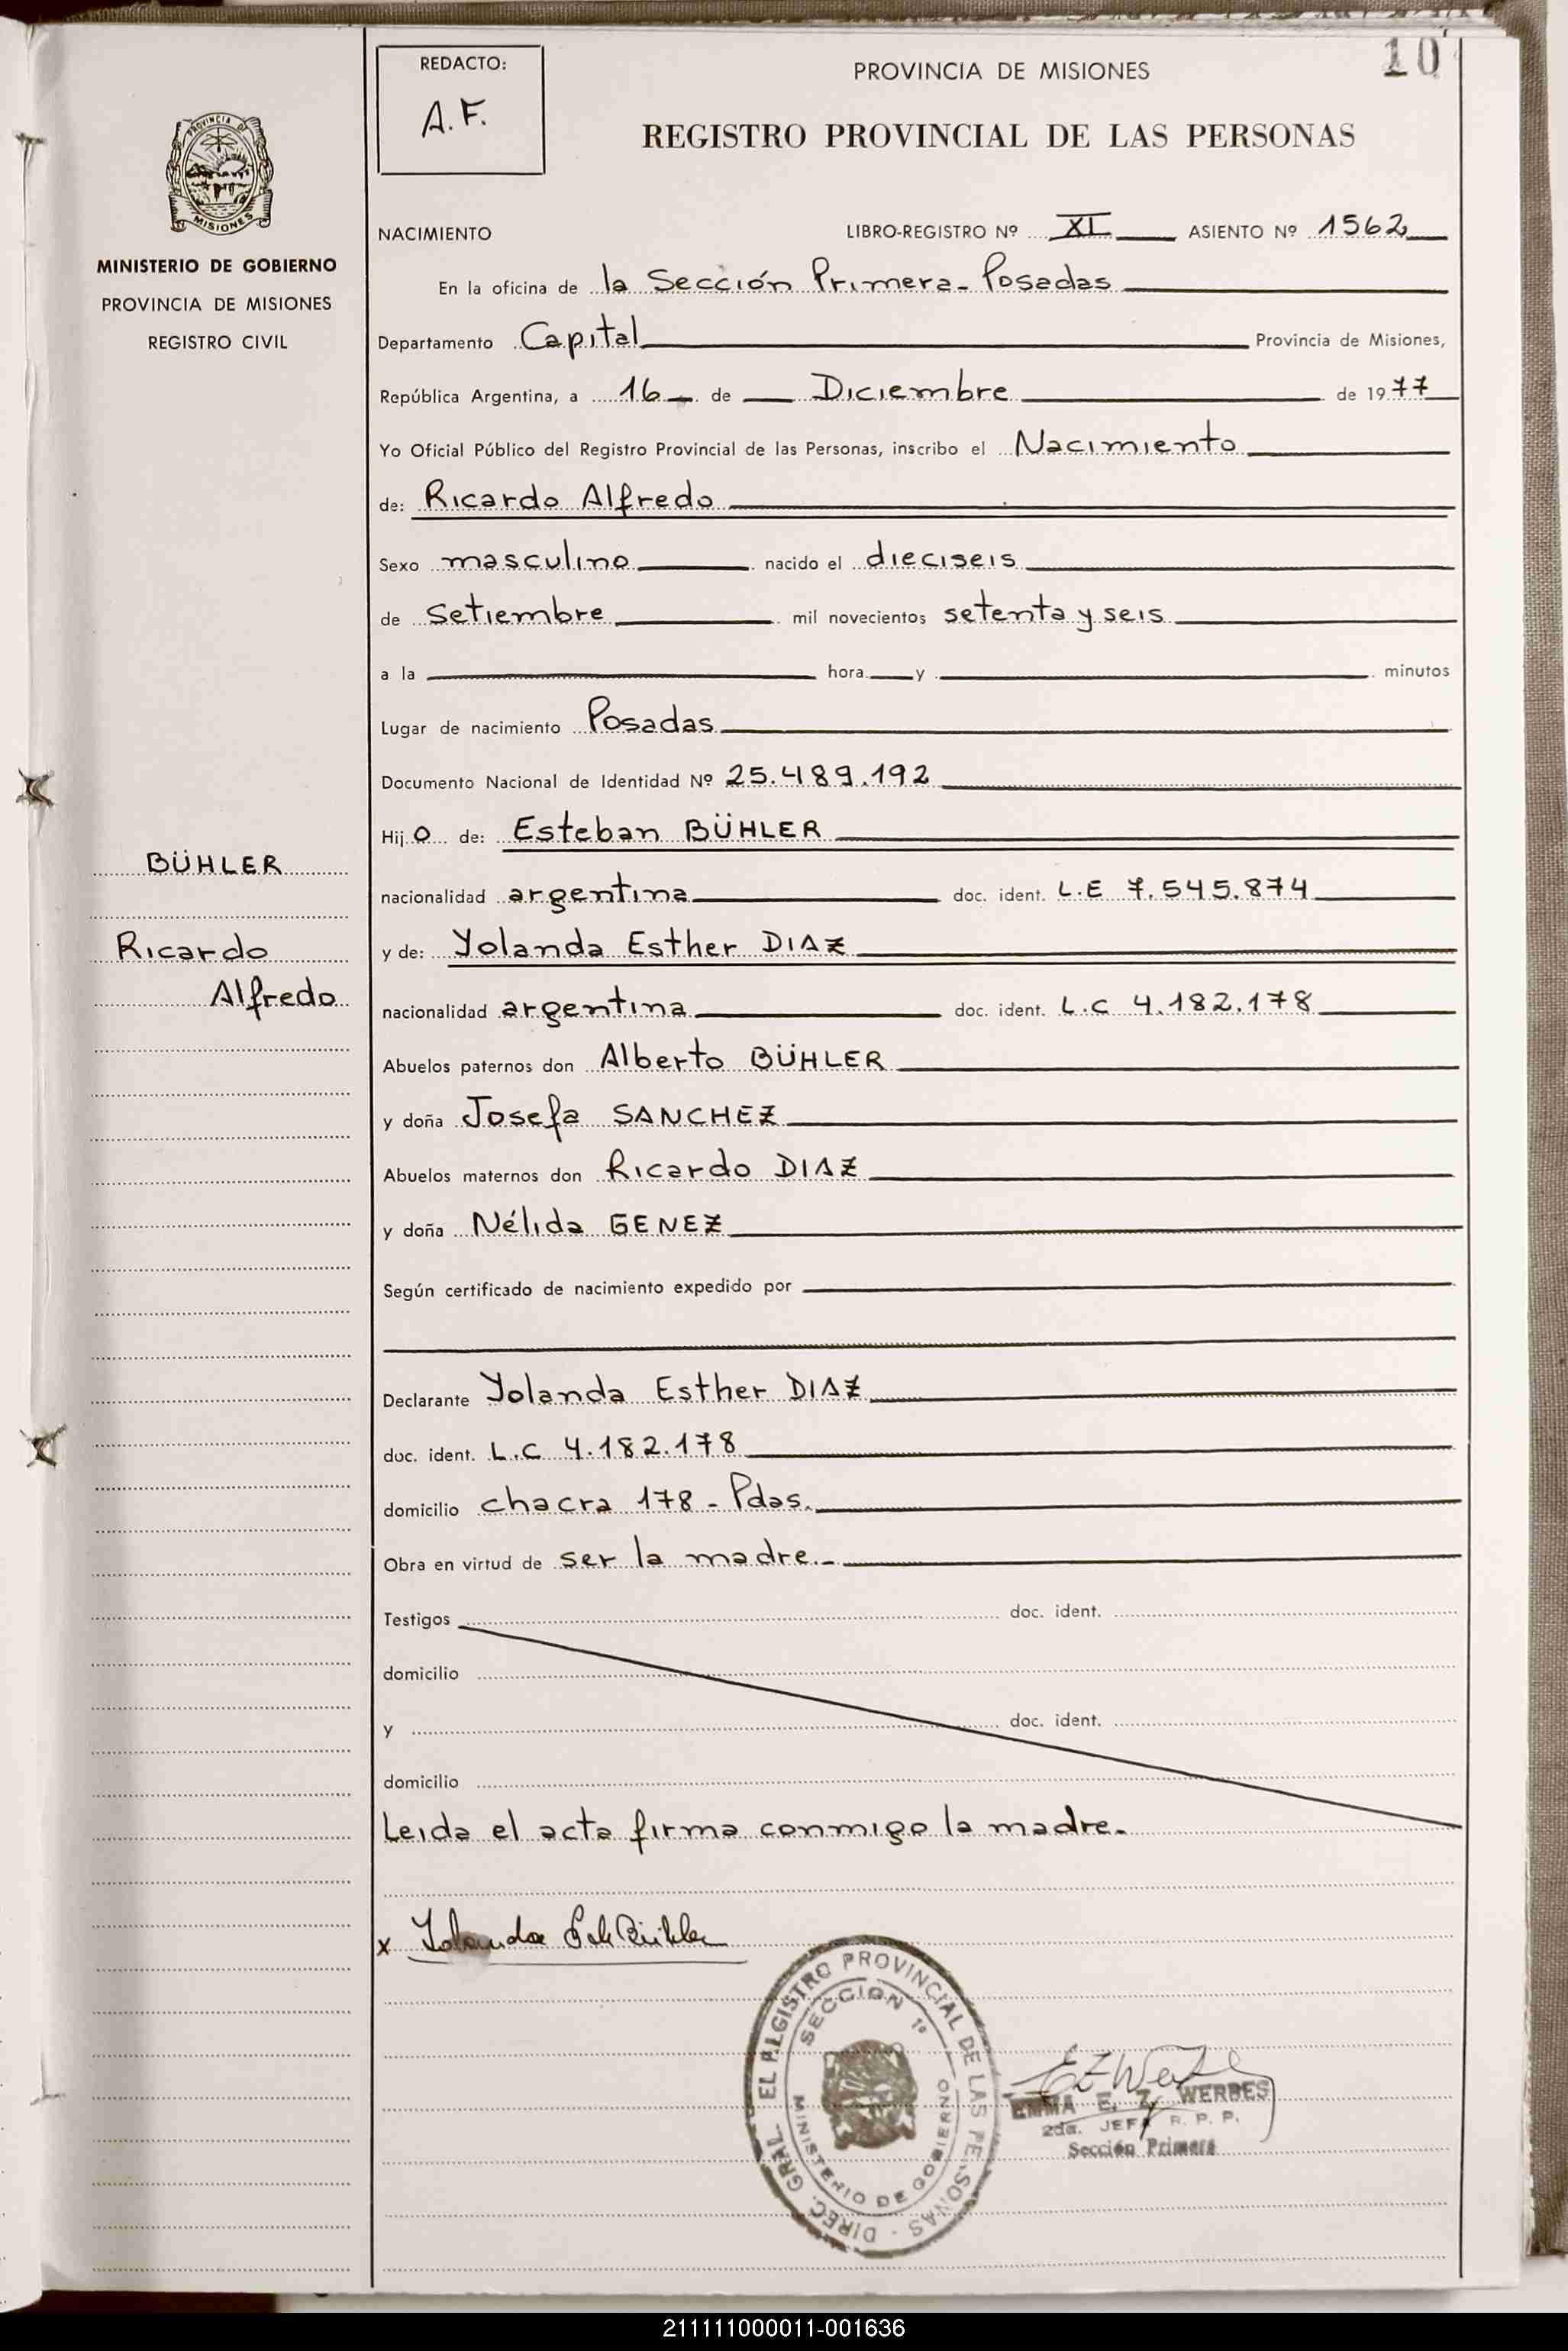 10
REDACTO:
A.F.
PROVINCIA DE MISIONES
REGISTRO PROVINCIAL DE LAS PERSONAS
PROVINCIA DE
MISIONES
MINISTERIO DE GOBIERNO
PROVINCIA DE MISIONES
REGISTRO CIVIL
NACIMIENTO LIBRO-REGISTRO Nº XI ASIENTO Nº 1562
En la oficina de la Sección Primera - Posadas
Departamento Capital Provincia de Misiones,
República Argentina, a 16 de Diciembre de 1977
Yo Oficial Público del Registro Provincial de las Personas, inscribo el Nacimiento
de: Ricardo Alfredo
Sexo masculino nacido el dieciseis
de setiembre mil novecientos setenta y seis
a la hora y minutos
Lugar de nacimiento Posadas
Documento Nacional de Identidad Nº 25.489.192
Hijo de: Esteban BÜHLER
BÜHLER
Ricardo
Alfredo
nacionalidad argentina doc. ident. L.E 7.545.874
y de: Yolanda Esther DIAZ
nacionalidad argentina doc. ident. L.C 4.182.178
Abuelos paternos don Alberto BÜHLER
y doña Josefa SANCHEZ
Abuelos maternos don Ricardo DIAZ
y doña Nélida GENEZ
Según certificado de nacimiento expedido por
Declarante Yolanda Esther DIAZ
doc. ident. L.C 4.182.178
domicilio chacra 178 - Pdas.
Obra en virtud de ser la madre.-
Testigos doc. ident.
domicilio
y doc. ident.
domicilio
Leida el acta firma conmigo la madre.
x Yolanda
DIREC. GRAL. EL REGISTRO PROVINCIAL DE LAS PERSONAS -
SECCION 1ª
MINISTERIO DE GOBIERNO
EMMA E. Z. WERBES
2da. JEFA R. P. P.
Sección Primera
211111000011-001636